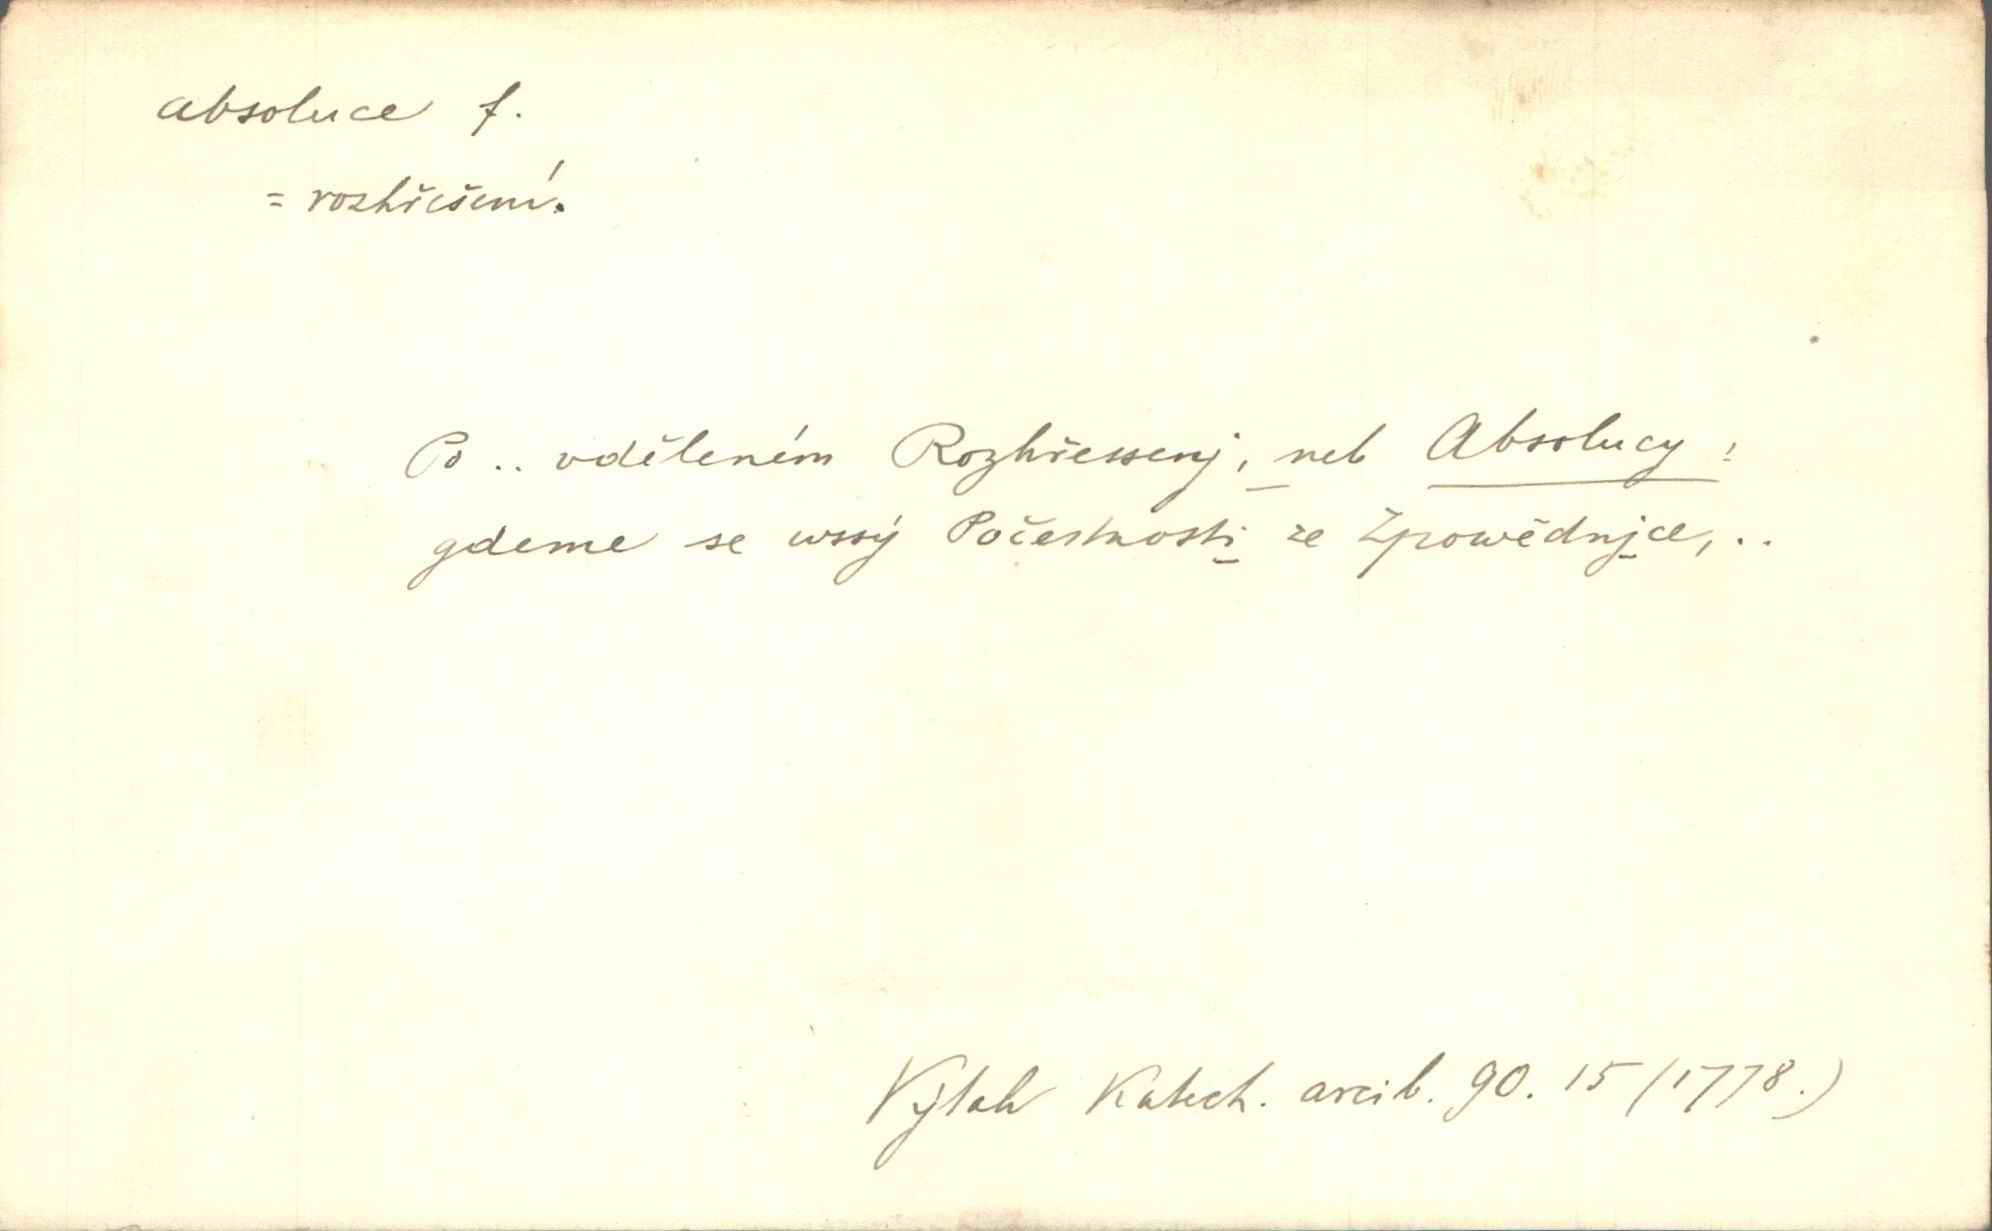 absoluce f.
= rozhřešení.
Po .. vděleném Rozhřessenj, neb Absolucy;
gdeme se wssý Počestnosti ze Zpowědnjce, ..
Výtah Katech. arcib. 90. 15 (1778.)